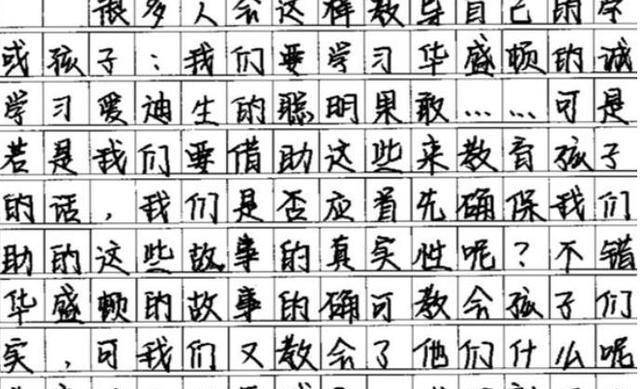 很多人会这样教导自己的学
或孩子：我们要学习华盛顿的诚
学习爱迪生的聪明果敢……可是
若是我们要借助这些来教育孩子
的话，我们是否应首先确保我们
助的这些故事的真实性呢？不错
华盛顿的故事的确可教会孩子们
实，可我们又教会了他们什么呢